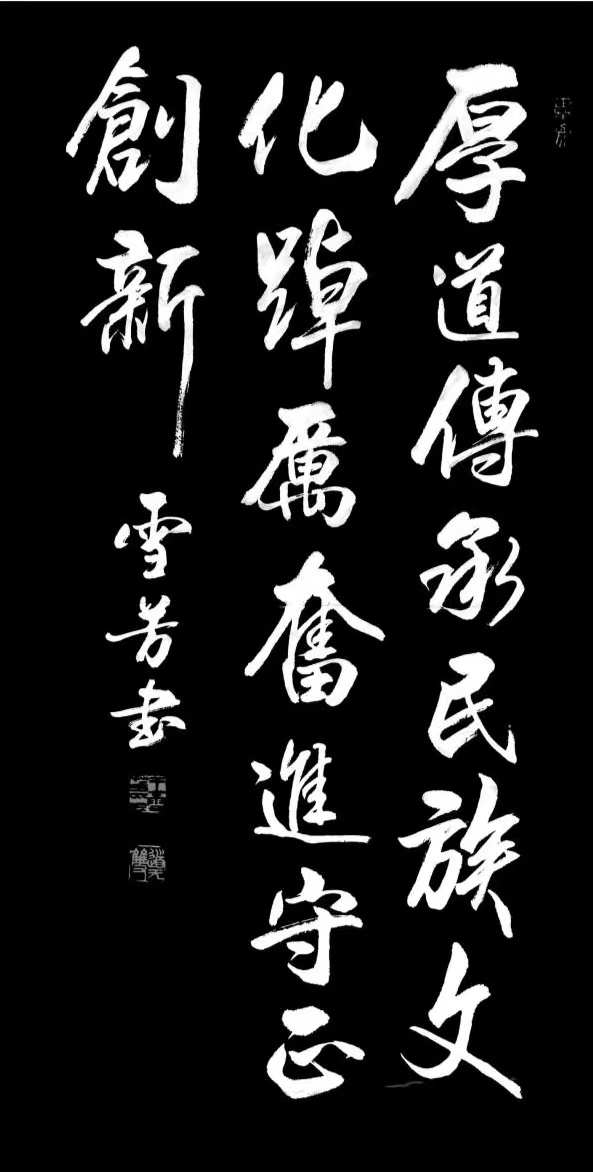 厚道傳承民族文
化踔厲奮進守正
創新
雪芳书